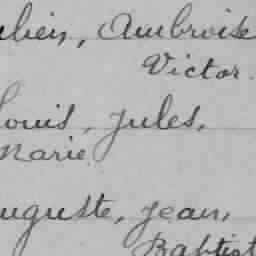 Ambroise
Victor.
Louis, Jules,
Marie
Auguste, Jean,
Baptist